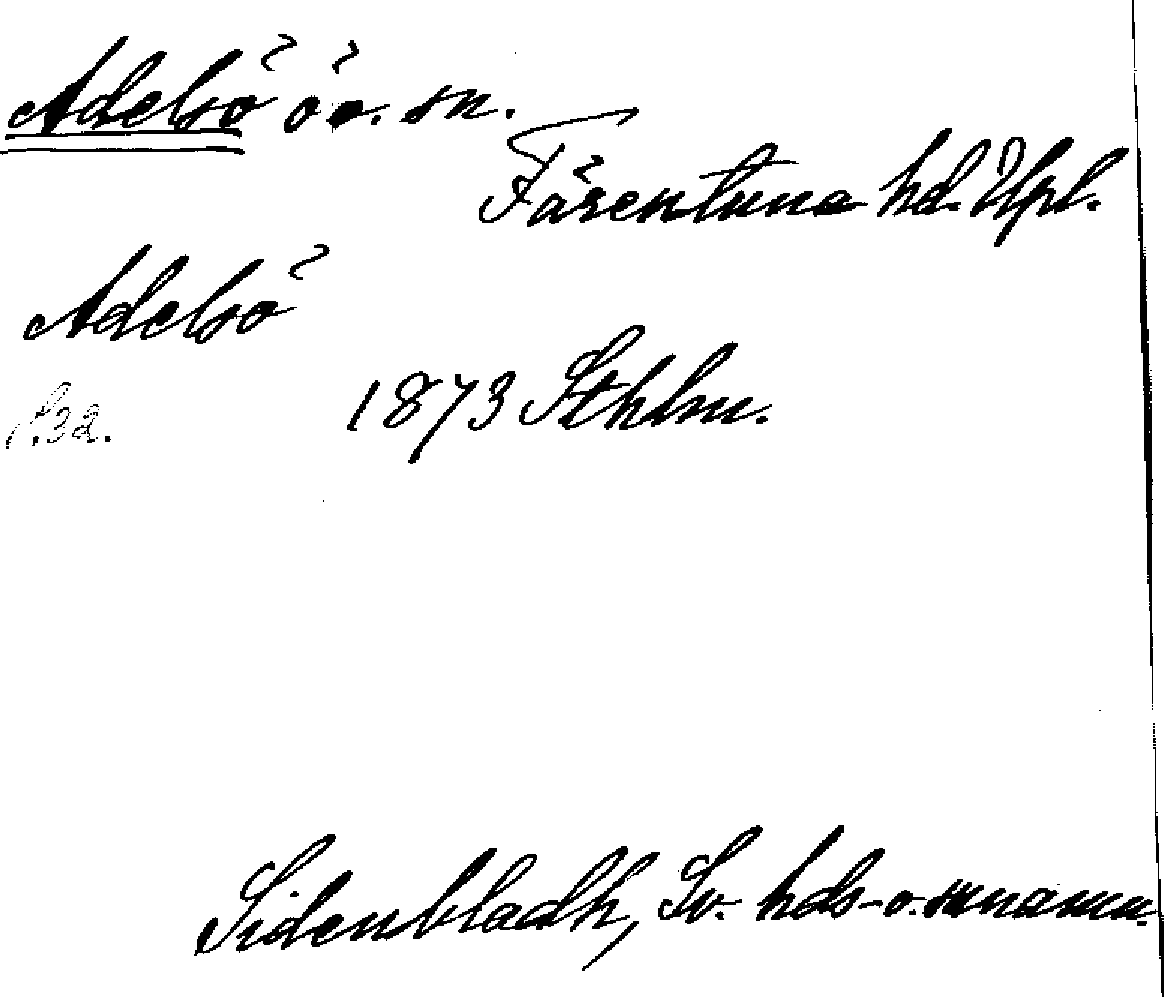 Adelsö ö o. sn.
Färentuna hd. Upl.
Adelsö
1873 Sthlm.
s. 32.
Sidenbladh, Sv. hds- o. sn namn.